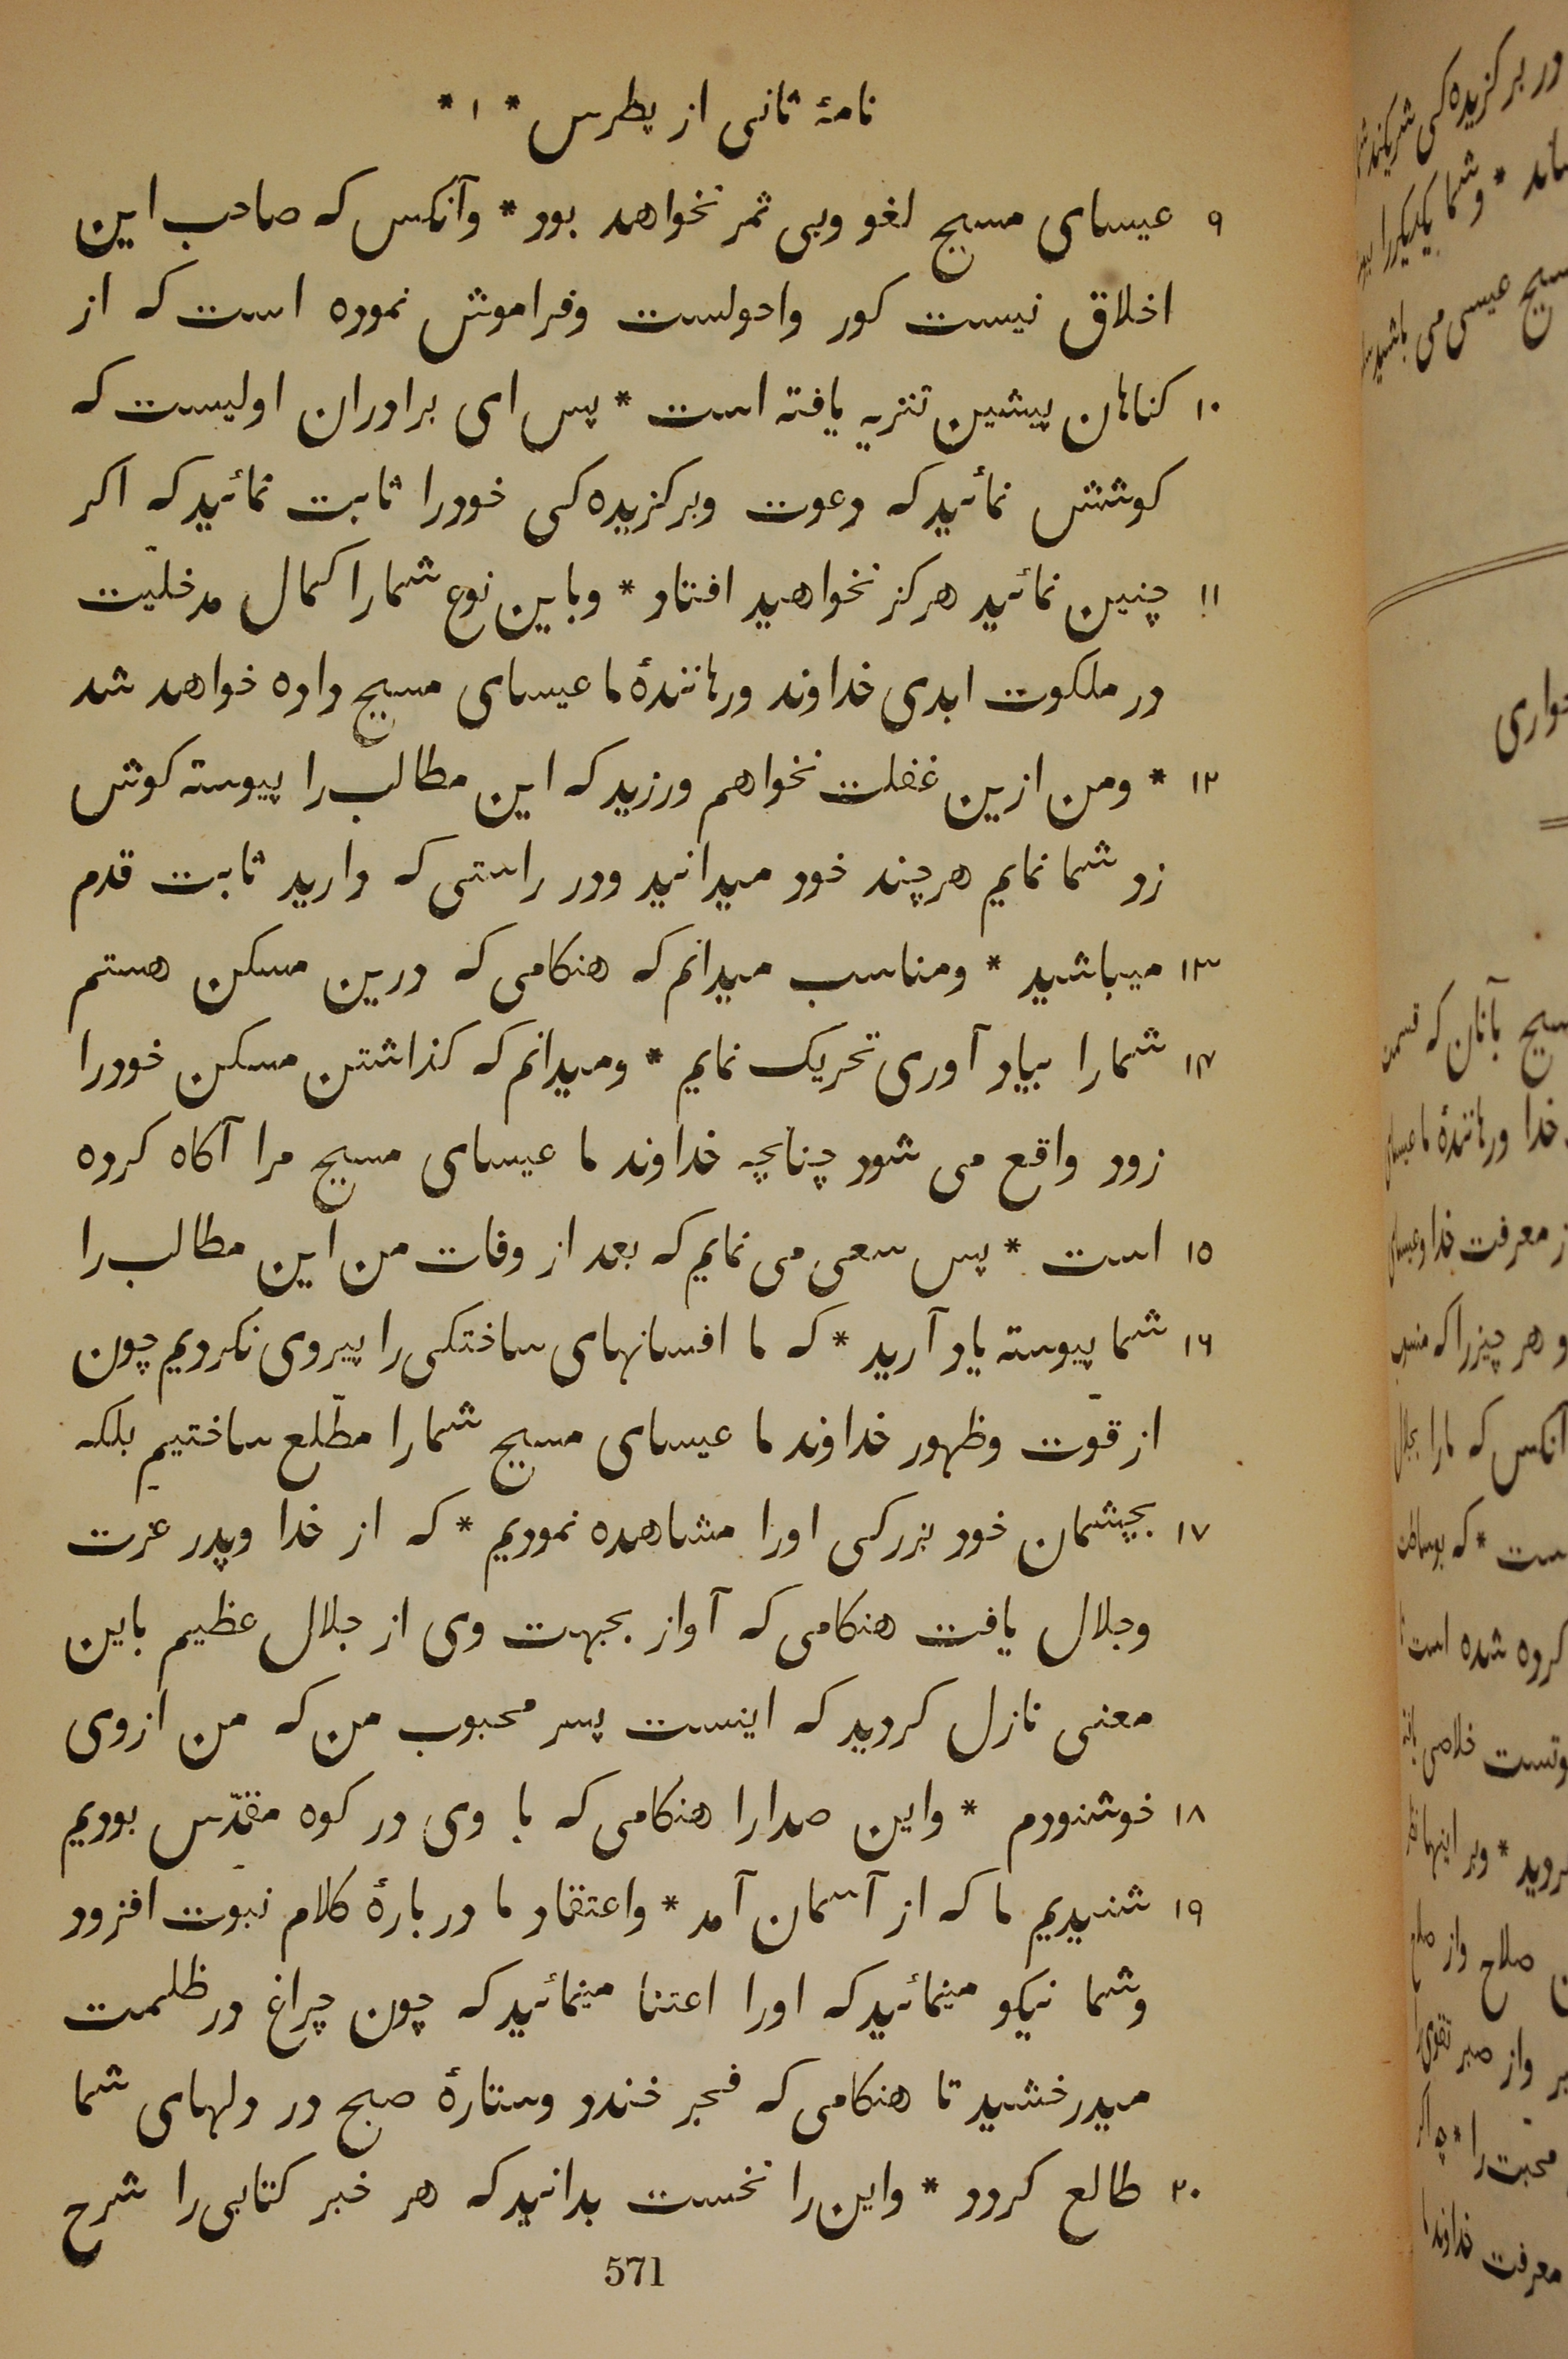 نامهٔ ثانی از پطرس * ۱ *
۹ عیسای مسیح لغو وبی ثمر نخواهد بود * وآنکس که صاحب این
اخلاق نیست کور واحولست وفراموش نموده است که از
۱۰ کناهان پیشین تنزیه یافته است * پس ای برادران اولیست که
کوشش نمائید که دعوت وبرکزیده‌کی خودرا ثابت نمائید که اکر
۱۱ چنین نمائید هرکز نخواهید افتاد * وباین نوع شمارا کمال مدخلیّت
در ملکوت ابدی خداوند ورهانندهٔ ما عیسای مسیح داده خواهد شد
۱۲ * ومن ازین غفلت نخواهم ورزید که این مطالب را پیوسته کوش
زد شما نمایم هرچند خود میدانید ودر راستی که دارید ثابت قدم
۱۳ میباشید * ومناسب میدانم که هنکامی که درین مسکن هستم
۱۴ شمارا بیاد آوری تحریک نمایم * ومیدانم که کذاشتن مسکن خودرا
زود واقع می شود چنانچه خداوند ما عیسای مسیح مرا آکاه کرده
۱۵ است * پس سعی می نمایم که بعد از وفات من این مطالب را
۱۶ شما پیوسته یاد آرید * که ما افسانهای ساختکی را پیروی نکردیم چون
از قوّت وظهور خداوند ما عیسای مسیح شمارا مطّلع ساختیم بلکه
۱۷ بچشمان خود بزرکی اورا مشاهده نمودیم * که از خدا وپدر عزّت
وجلال یافت هنکامی که آواز بجهت وی از جلال عظیم باین
معنی نازل کردید که اینست پسر محبوب من که من ازوی
۱۸ خوشنودم * واین صدارا هنکامی که با وی در کوه مقدّس بودیم
۱۹ شنیدیم ما که از آسمان آمد * واعتقاد ما در بارهٔ کلام نبوّت افزود
وشما نیکو مینمائید که اورا اعتنا مینمائید که چون چراغ در ظلمت
میدرخشید تا هنکامی که فجر خندد وستارهٔ صبح در دلهای شما
۲۰ طالع کردد * واین را نخست بدانید که هر خبر کتابی را شرح
571
در برکزیده‌کی
وشما یکدیکررا
مسیح عیسی می باشید
حواری
بآنان که قسمت
خدا ورهانندهٔ ما عیسای
از معرفت خدا وعیسای
و هر چیزرا که
آنکس که مارا بجلال
است * که بوساطت
کرده شده است
خلاصی یافته
وبر اینها
صلاح واز
واز صبر تقوی
محبّت را *
معرفت خداوند ما